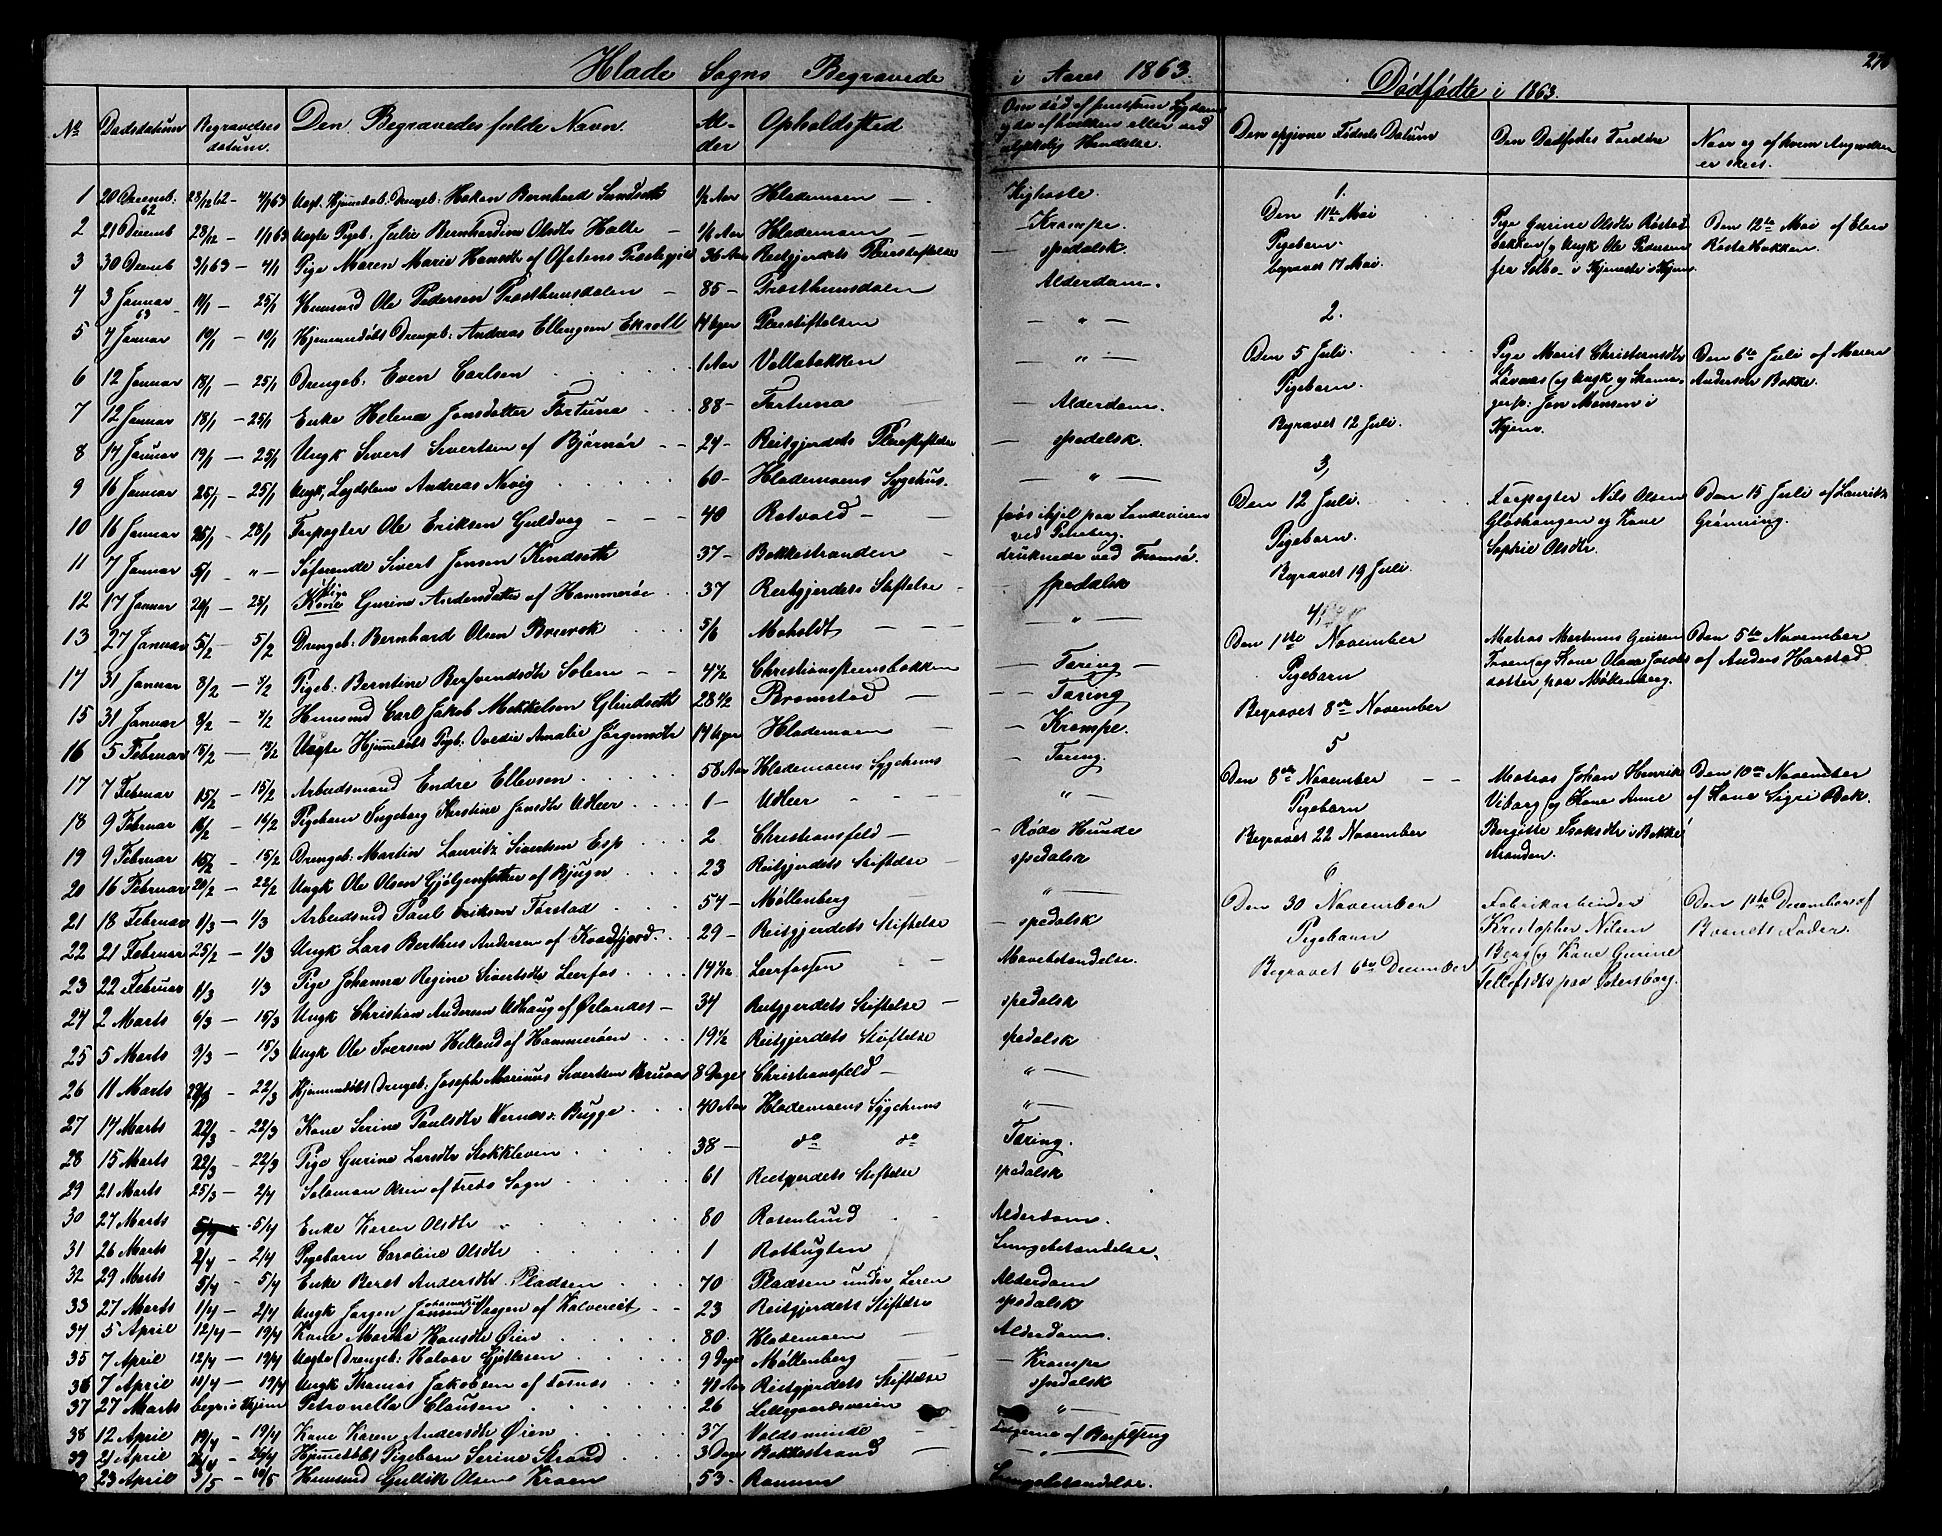 Hlade Sogns Begravede i Aaret 1863.
Dødfødte i 1863.
No Dødsdatum Begravelses datum. Den Begravedes fulde Navn. Alder Opholdssted
Den opgivne Fødsels Datum Den Dødfødtes Forældre Naar og af hvem Angivelsen er skeet.
1 20 Decemb. 62 23/12 62 - 4/1 63 Uægt. Hjemdøb. Drengeb. Hakon Bernhard Sundseth 1/2 Aar Hlademoen Kighoste.
2 21 Decemb 28/12 - 1/1 63 Uægte Pigeb. Julie Bernhardine Olsdtr Halle 1/6 Aar Hlademoen Krampe.
3 30 Decemb 3/1 63 - 4/1 Pige Maren Marie Hansdtr af Ofotens Præstegjeld 36 Aar Reitgjerdets Pleiestiftelse spedalsk.
4 3 Januar 63 11/1 - 25/1 Huusmd Ole Pedersen Præsthuusdalen 85 - Præsthuusdalen Alderdom.
5 4 Januar 19/1 - 19/1 Hjemmedøbt Drengeb. Andreas Ellingsen Ekroll 14 Uger Pleiestiftelsen - " -
6 12 Januar 18/1 - 25/1 Drengeb. Even Carlsen 1 Aar Vollabakken - " -
7 12 Januar 18/1 - 25/1 Enke Helena Jonsdatter Fortuna 88 - Fortuna Alderdom.
8 14 Januar 19/1 - 25/1 Ungk Sivert Sivertsen af Bjørnør 24 - Reitgjerdets Pleiestiftelse spedalsk.
9 16 Januar 25/1 - 25/1 Ungk. Legdslem Andreas Navig 60 - Hlademoens Sygehus. - " -
10 16 Januar 25/1 - 28/1 Forpagter Ole Eriksen Guldveg 40 Rotvold - frøs ihjel paa Landeveien ved Pineberg.
11 7 Januar 5/1 - " - Søfarende Sivert Jonsen Kindseth 37 - Bakkestranden druknede ved Tromsø.
12 17 Januar 24/1 - 25/1 Pige Kone Gurine Andersdatter af Hammerøe 37 Reitgjerdets Stiftelse - spedalsk
13 27 Januar 5/2 - 5/2 Drengeb. Bernhard Olsen Brevok 5/6 Moholdt - " -
14 31 Januar 8/2 - 8/2 Pigeb. Berntine Bersvendsdtr Solem 4 1/2 Christiansteensbakken Tæring
15 31 Januar 8/2 - 8/2 Huusmd Carl Jakob Mekkelsen Glindseth 28 1/2 Bromstad Tæring
16 5 Februar 15/2 - 7/2 Uægte Hjemdøbt Pigb. Ovedie Amalie Jørgensdtr 14 Uger Hlademoen Krampe.
17 7 Februar 15/2 - 15/2 Arbeidsmand Endre Ellevsen 58 Aar Hlademoens Sygehuus Tæring.
18 9 Februar 16/2 - 16/2 Pigebarn Ingeborg Kirstine Jonsdtr Udleer 1 - Udleer " -
19 9 Februar 15/2 - 15/2 Drengeb. Martin Lauritz Sivertsen Esp 2 Christiansfeld - Røde Hunde
20 16 Februar 20/2 - 22/2 Ungk Ole Olsen Gjølgenfætter af Bjugn 23 Reitgjerdets Stiftelse spedalsk
21 18 Februar 1/3 - 1/3 Arbeidsmd Paul Eriksen Tørstad 54 - Møllenberg " -
22 21 Februar 25/2 - 1/3 Ungk Lars Berthus Andersen af Kvædfjord 29 - Reitgjerdets Stiftelse - spedalsk
23 22 Februar 1/3 1/3 Pige Johanna Regine Sivertsdtr Leerfos 14 4/12 Leerfossen Mavebetændelse.
24 2 Marts 6/3 - 15/3 Ungk Christian Andersen Udhaug af Ørlandet 34 Reitgjerdets Stiftelse - spedalsk
25 5 Marts 9/3 - 15/3 Ungk Ole Iversen Helland af Hammerøen 19 1/2 Reitgjerdets Stiftelse spedalsk
26 11 Marts 22/3 - 22/3 Hjemmedøbt Drengeb. Joseph Marinus Sivertsen Bruvær 8 Dage Christiansfeld - " -
27 14 Marts 22/3 - 22/3 Kone Serine Paulsdtr Vernæs v. Bugge 40 Aar Hlademoens Sygehuus " -
28 15 Marts 22/3 - 22/3 Pige Gurine Larsdtr Stokkleven 38 - do do Tæring.
29 21 Marts 25/3 - 2/4 Salomon Olsen af Freds Sogn 61 Reitgjerdets Stiftelse spedalsk
30 27 Marts 5/4 5/4 Enke Karen Olsdtr 80 Rosenlund Alderdom.
31 26 Marts 2/4 - 2/4 Pigebarn Caroline Olsdtr 1 Rotbugten Lungebetændelse.
32 29 Marts 5/4 - 5/4 Enke Beret Andersdtr Pladsen 70 Pladsen under Leren Alderdom
33 27 Marts 1/4 - 2/4 Ungk Jørgen Johannessen Jansen Vaagen af Kalvereit 23 Reitgjerdets Stiftelse spedalsk
34 5 April 12/4 - 19/4 Kone Martha Hansdtr Øien 80. Hlademoen Alderdom.
35 7 April 12/4 - 19/4 Uægte Drengeb. Halvor Gjetlesen 9 Dage Møllenberg - Krampe
36 7 April 11/4 - 19/4 Ungk Thomas Jakobsen af Fosnæs 41 Aar Reitgjerdets Stiftelse spedalsk
37 27 Marts begr. i Hjem Petronella Clausen 26 Lillegaardsveien " -
38 12 April 19/4 - 19/4 Kone Karen Andersdtr Øien 37 Voldsminde Følgerne af Barselseng
39 21 April 26/4 - 26/4 Hjemmedøbt Pigebarn Serine Strand 3 Dage Bakkestrand - " -
23 April 3/5 - 10/5 Huusmd Gullik Olsen Kroen 53 - Ranum Lungebetændelse.
1.
Den 11te Mai Pigebarn. begravet 17 Mai.
Pige Gurine Olsdtr Røstadbakken og Ungk Ole Pedersen fra Selbo
Den 12te Mai af Elen Røstadbakken.
2.
Den 5 Juli. Pigebarn. Begravet 12 Juli.
Pige Marit Christensdtr Løvaas og Ungk og Skomagersv. Jon Monsen i Hjem.
Den 6te Juli af Maren Andersdtr Bakke.
3,
Den 12 Juli. Pigebarn. Begravet 19 Juli.
Forpagter Nils Olsen Gløshaugen og Kone Sophie Olsdtr.
Den 15 Juli af Lauritz Grønning.
4,
Den 1ste November Pigebarn Begravet 8de November
Matros Martinus Troen og Kone Olava Jacobsdotter paa Møllenberg.
Den 5te November af Anders Harstad
5
Den 8de November Pigebarn Begravet 22 November
Matros Johan Henrik Viborg og Kone Anne Bergitte Isaksdtr i Bakkestranden.
Den 10de November af Kone Sigri Bak.
6
Den 30 November Pigebarn Begravet 6te December
Fabrikarbeider Kristopher Nilsen Berg og Kone Gurine Tellefsdtr paa Petersborg.
Den 11te December af Barnets Fader.